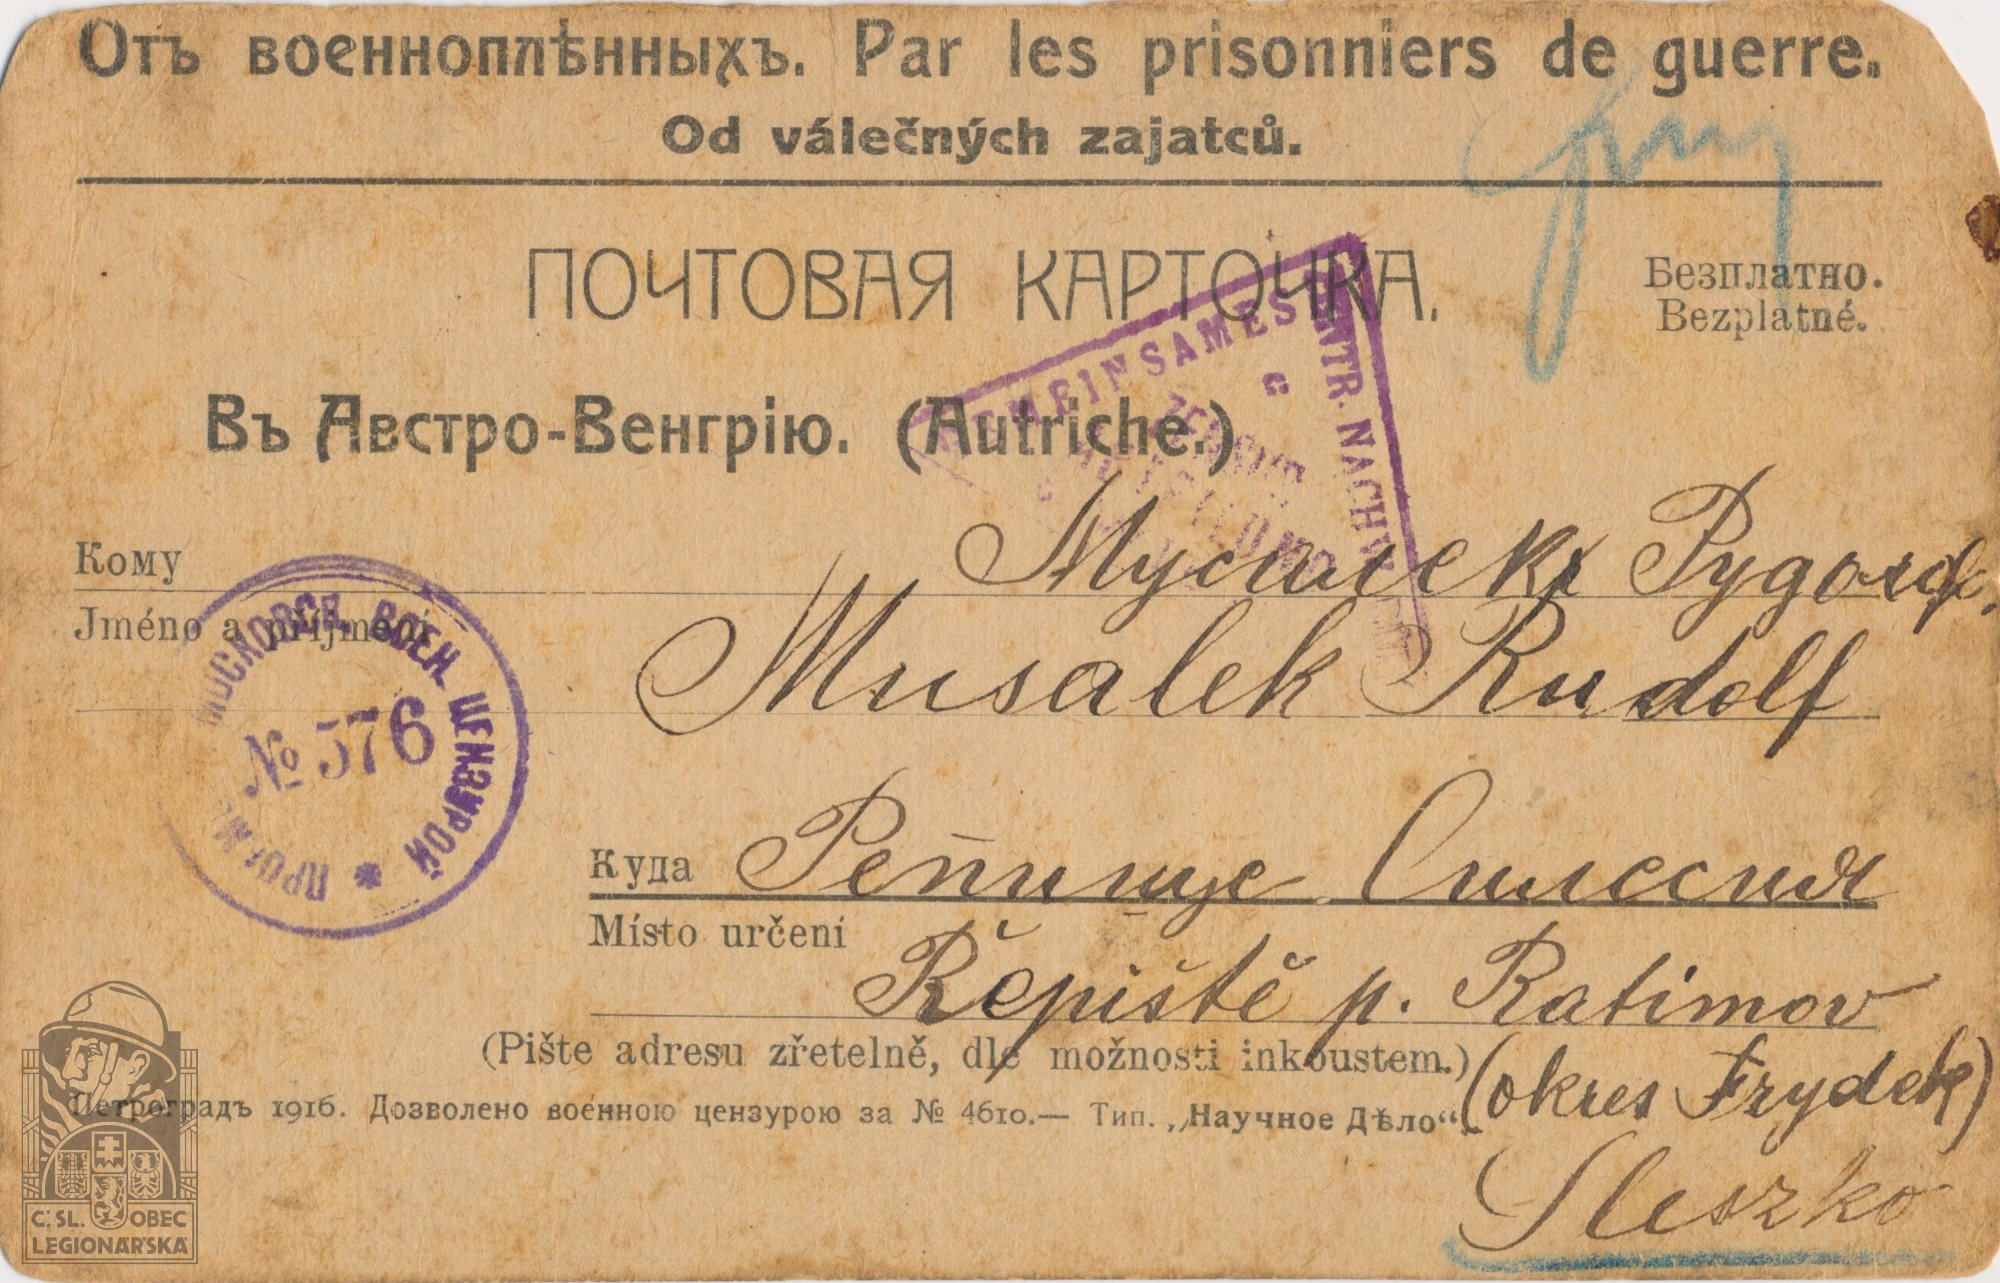 Отъ военноплѣнныхъ. Par les prisonniers de guerre.
Od válečných zajatců.
ПОЧТОВАЯ КАРТОЧКА.
Безплатно.
Bezplatné.
Въ Австро-Венгрію. (Autriche.)
GEMEINSAMES ZENTR. NACHW
ZENSUR
Кому Мусалекъ Рудольф.
Jméno a příjmení
Musalek Rudolf
МОСКОВСК. ВОЕН. ЦЕНЗУРОЙ
№ 576
Куда Репище Силесия
Místo určení
Řepiště p. Ratimov
(Pište adresu zřetelně, dle možnosti inkoustem.)
(okres Frydek)
Петроградъ 1916. Дозволено военною цензурою за № 4610.— Тип. „Научное Дѣло“.
Slezko
Č. SL. OBEC
LEGIONÁŘSKÁ